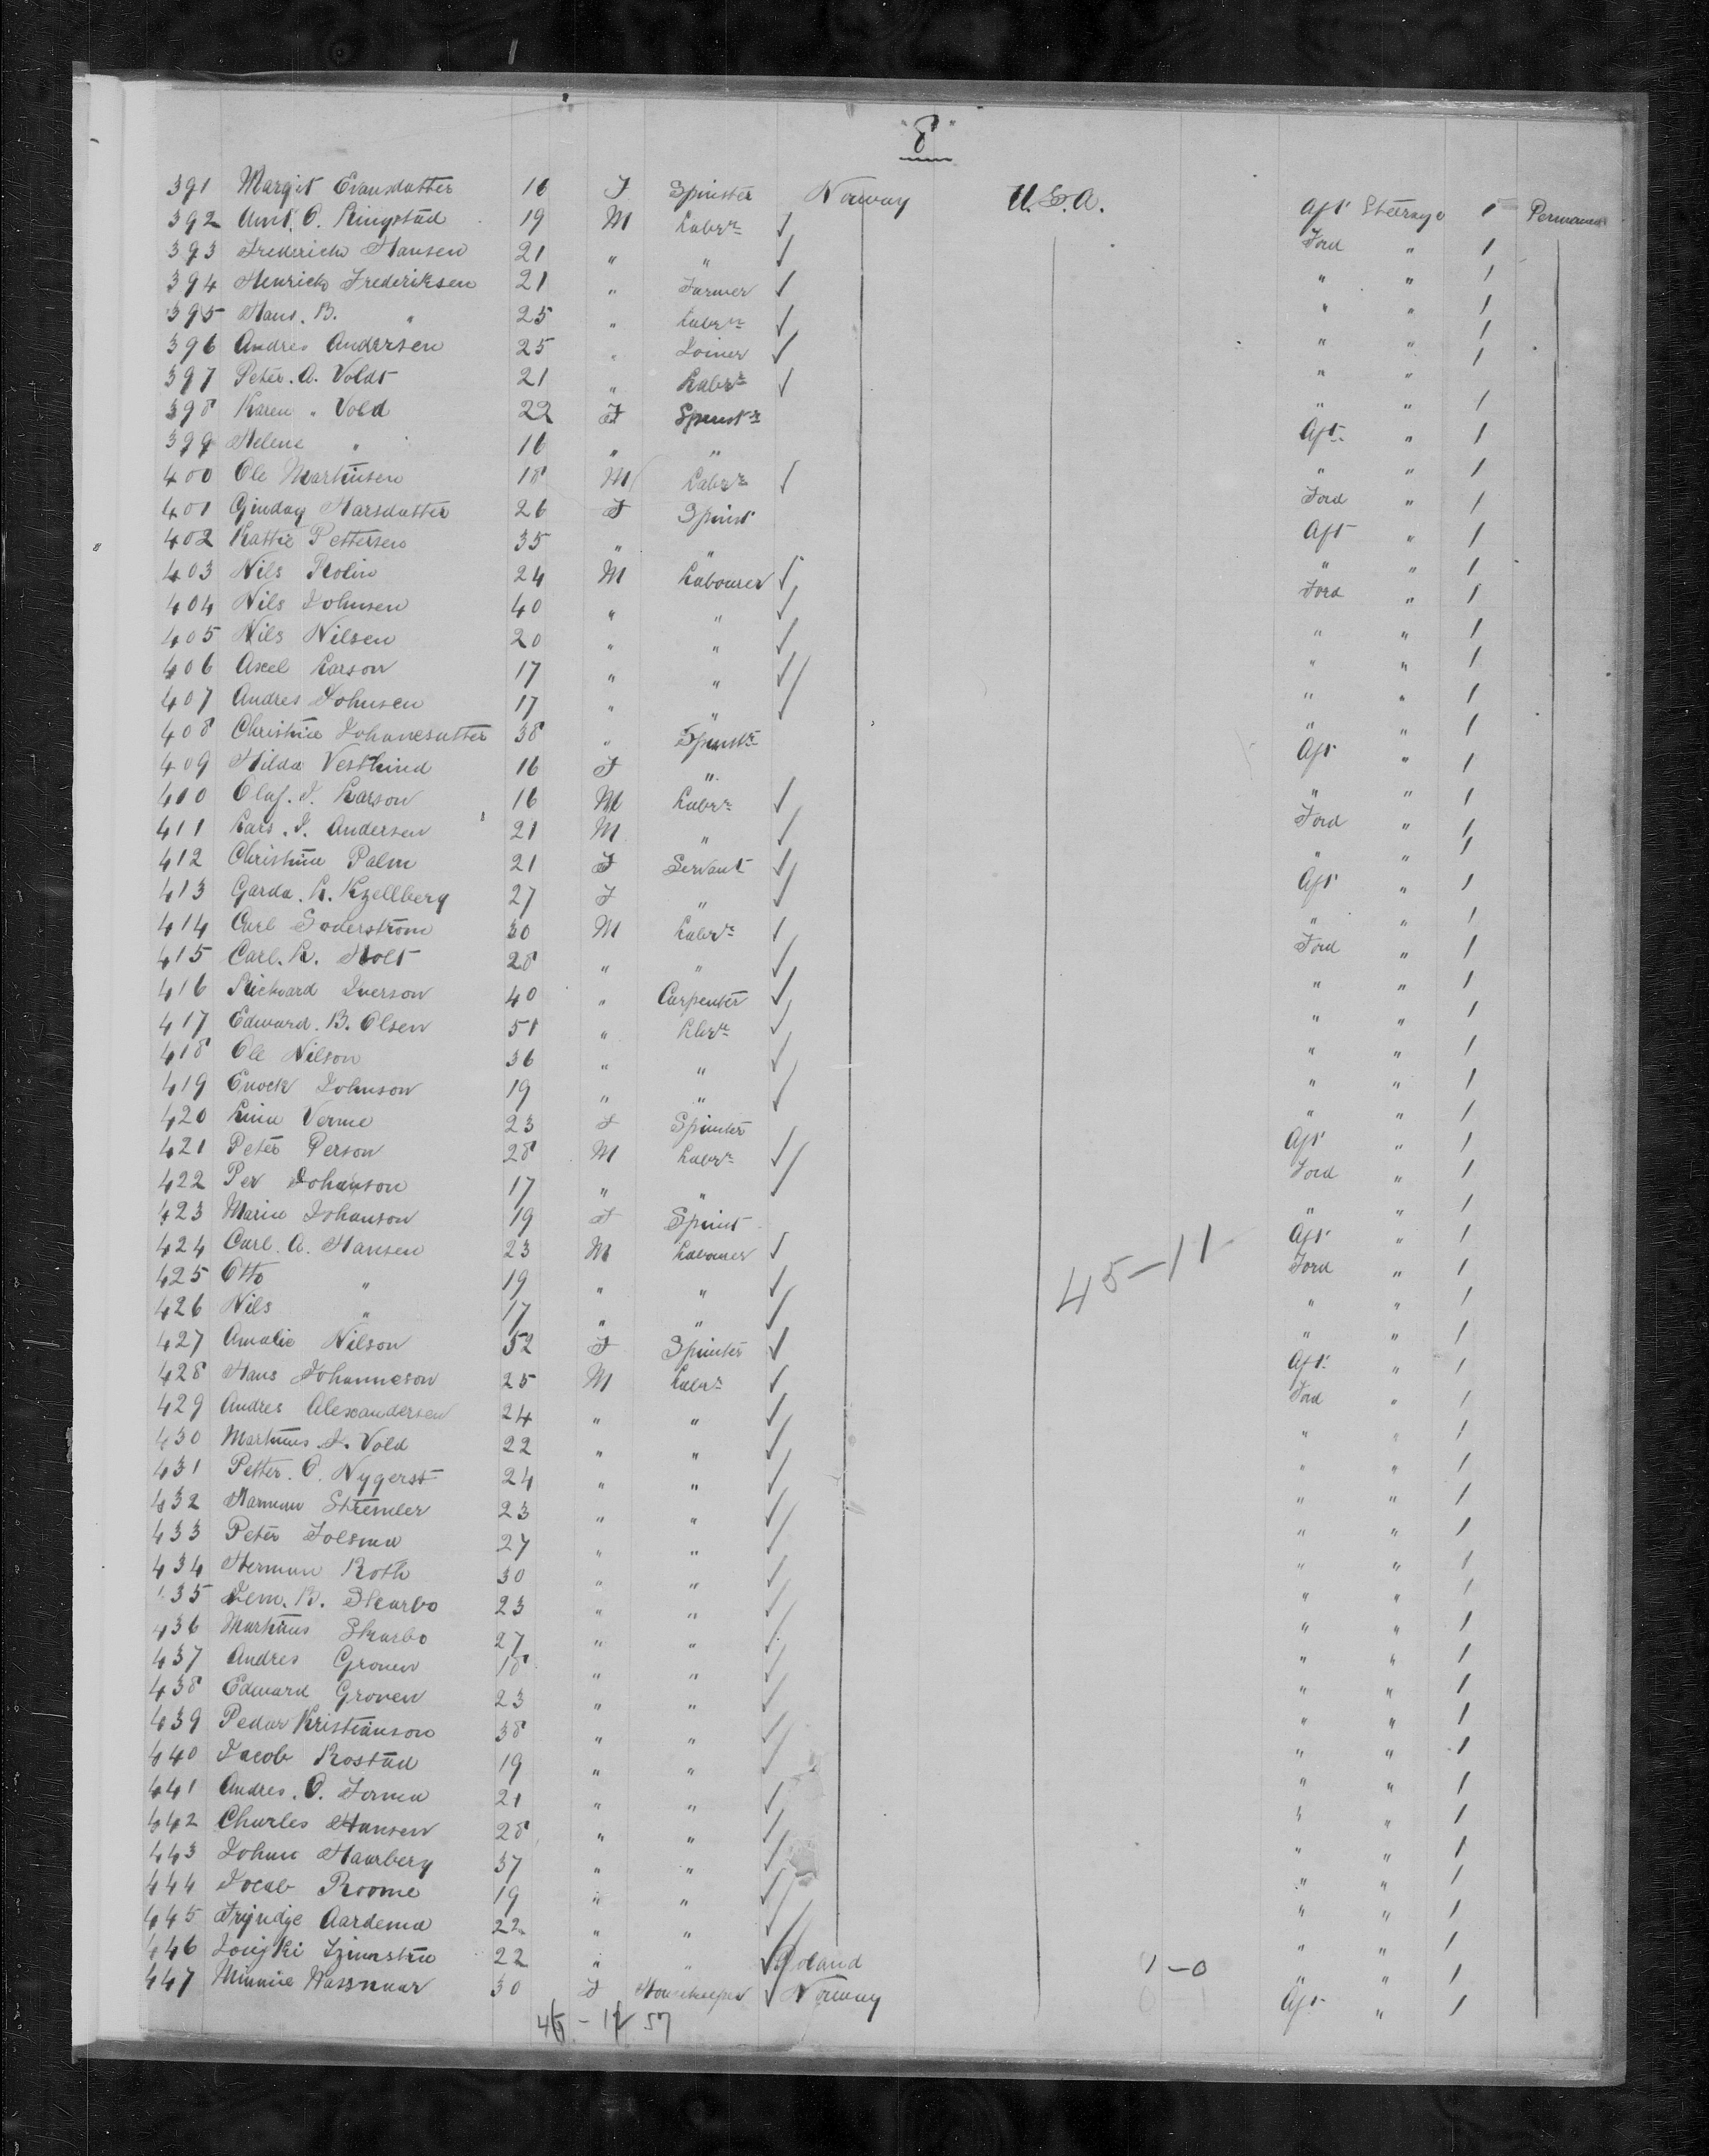 "8"
391 Margit Evansdatter 16 F Spinster Norway U.S.A. Aft Steerage 1 Permanent
392 Amt. O. Ringstad 19 M Labr ✓ Ford " 1
393 Frederick Hansen 21 " " ✓ " " 1
394 Henrick Frederiksen 21 " Farmer ✓ " " 1
395 Hans. B. " 25 " Labr ✓ " " 1
396 Andres Andersen 25 " Joiner ✓ " " 1
397 Peter. A. Voldt 21 " Labr ✓ " " 1
398 Karen " Vold 22 F Spinstr Aft " 1
399 Helene " 16 " " " " 1
400 Ole Martinsen 18 M Labr ✓ Ford " 1
401 Larsdatter 26 F Spinst Aft " 1
402 Kattie Pettersen 35 " " " " 1
403 Nils Rolin 24 M Labourer ✓ Ford " 1
404 Nils Johnsen 40 " " ✓ " " 1
405 Nils Nilsen 20 " " ✓ " " 1
406 Axel Larson 17 " " ✓ " " 1
407 Andres Johnsen 17 " " ✓ " " 1
408 Christine Johanesutter 38 " Spinstr Aft " 1
409 Hilda Vesthind 16 F " " " 1
410 Olaf. J. Larson 16 M Labr ✓ Ford " 1
411 Lars. J. Andersen 21 M " ✓ " " 1
412 Christine Palm 21 F Servant ✓ Aft " 1
413 Garda. K. Kzellberg 27 F " ✓ " " 1
414 Carl Soderstrom 30 M Labr ✓ Ford " 1
415 Carl. K. Holt 28 " " ✓ " " 1
416 Richard Iverson 40 " Carpenter ✓ " " 1
417 Edward. B. Olsen 51 " Lbr ✓ " " 1
418 Ole Nilson 36 " " ✓ " " 1
419 Enock Johnson 19 " " ✓ " " 1
420 Lina Verme 23 F Spinster Aft " 1
421 Peter Person 28 M Labr ✓ Ford " 1
422 Per Johanson 17 " " ✓ " " 1
423 Marie Johanson 19 F Spinst Aft " 1
424 Carl. A. Hansen 23 M Labourer ✓ 45-11 Ford " 1
425 Otto " 19 " " ✓ " " 1
426 Nils " 17 " " ✓ " " 1
427 Amalie Nilson 52 F Spinster ✓ Aft " 1
428 Hans Johanneson 25 M Labr ✓ Ford " 1
429 Andres Alexandersen 24 " " ✓ " " 1
430 Martinus J. Vold 22 " " ✓ " " 1
431 Petter. O. Nygerst 24 " " ✓ " " 1
432 Harman Stremler 23 " " ✓ " " 1
433 Peter Tolsma 27 " " ✓ " " 1
434 Herman Roth 30 " " ✓ " " 1
435 B. Skarbo 23 " " ✓ " " 1
436 Martinus Skarbo 27 " " ✓ " " 1
437 Andres Groven 18 " " ✓ " " 1
438 Edward Groven 23 " " ✓ " " 1
439 Pedar Kristianson 38 " " ✓ " " 1
440 Jacob Rostad 19 " " ✓ " " 1
441 Andres. O. 21 " " ✓ " " 1
442 Charles Hansen 28 " " ✓ " " 1
443 Johan Haarberg 37 " " ✓ " " 1
444 Jocab Roome 19 " " ✓ " " 1
445 Aardema 22 " " ✓ " " 1
446 22 " " ✓ 1-0 " " 1
447 Minnie Wassnaar 30 F Housekeeper ✓ Norway Aft " 1
57